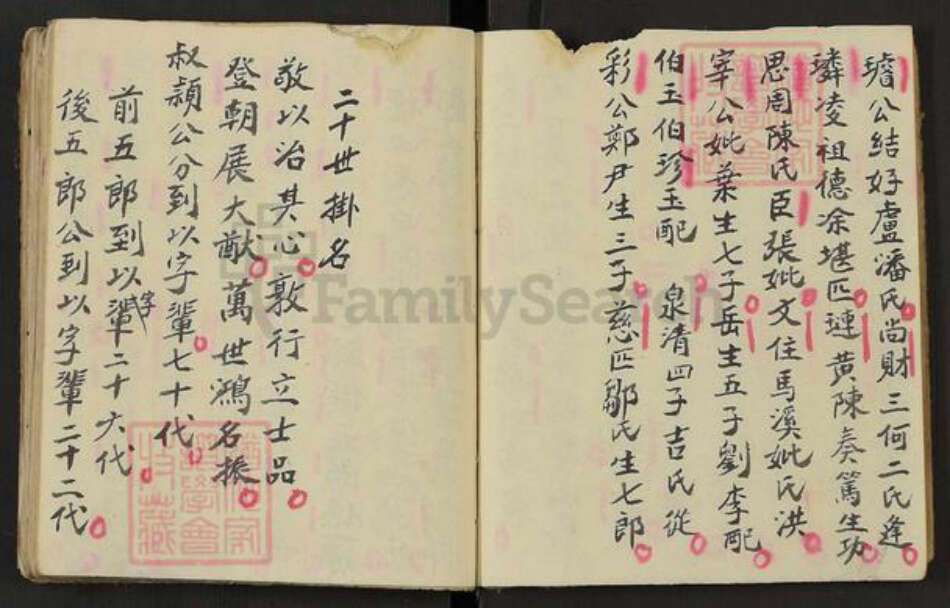 璿公結好盧潘氏尚財三何二氏逢
璘凌祖德凃堪匹璉黃陳奏篤生功
思周陳氏臣張妣文住馬溪妣氏洪
宰公妣葉生七子岳生五子劉李配
伯玉伯珍玉配 泉清四子吉氏從
彩公鄭尹生三子慈匹鄒氏生七郎
二十世掛名
敬以治其心敦行立士品
登朝展大猷萬世鴻名振
叔穎公分到以字輩七十代
前五郎到以字輩二十六代
後五郎公到以字輩二十二代
FamilySearch